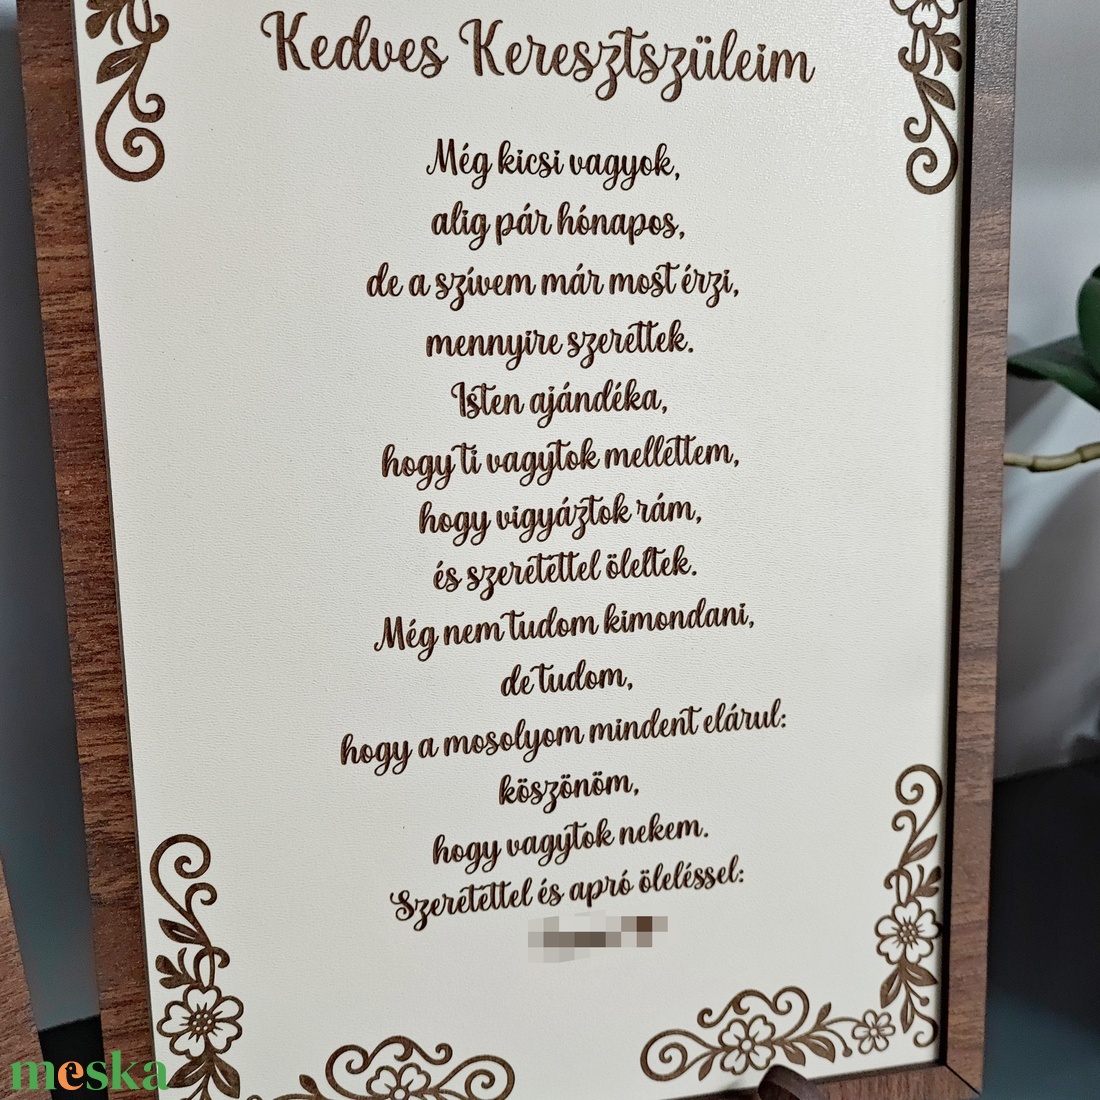 Kedves Keresztszüleim
Még kicsi vagyok,
alig pár hónapos,
de a szívem már most érzi,
mennyire szerettek.
Isten ajándéka,
hogy ti vagytok mellettem,
hogy vigyáztok rám,
és szeretettel öleltek.
Még nem tudom kimondani,
de tudom,
hogy a mosolyom mindent elárul:
köszönöm,
hogy vagytok nekem.
Szeretettel és apró öleléssel:
meska